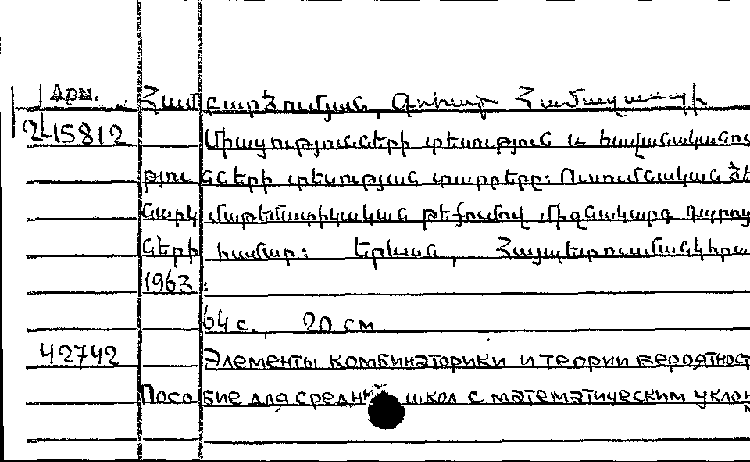 Арм. Համբարձումյան, Գոհար Համազասպի
2415812 Միացությունների տեսություն և հավանականու
թյունների տեսության տարրերը: Ուսումնական ձեռ
նարկ մաթեմատիկական թեքումով միջնակարգ դպրոց
ների համար: Երևան, Հայպետուսմանկհրատ
1963.
64 с. 20 см
42742 Элементы комбинаторики и теории вероятност
Пособие для средних школ с математическим уклон